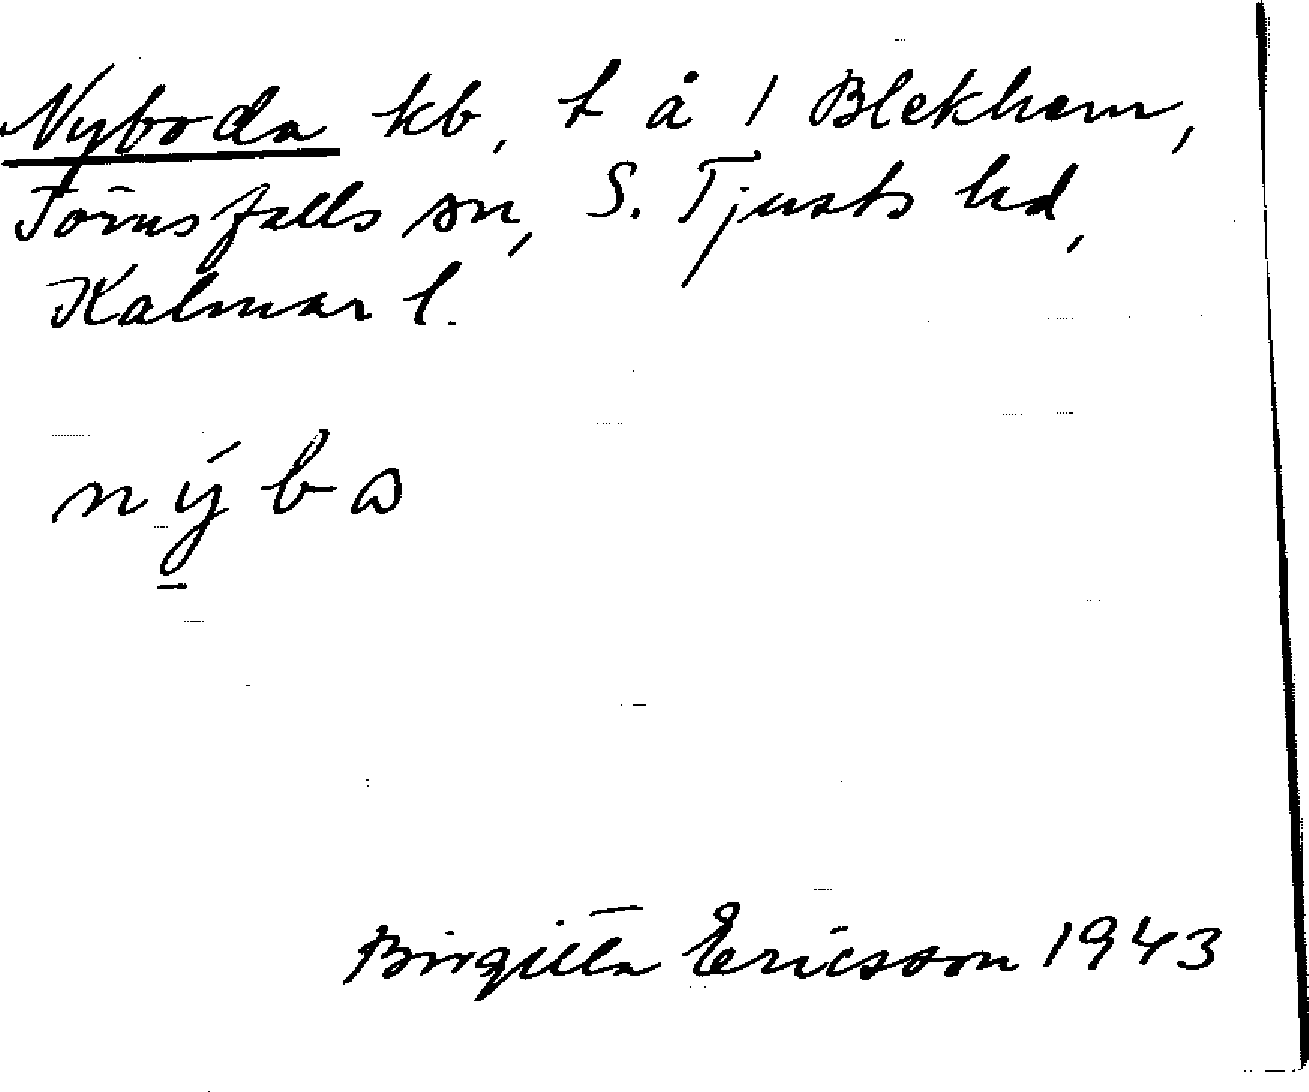 Nyboda kb, t å 1 Blekhem,
Törnsfalls sn, S. Tjusts hd,
Kalmar l.
nýba
Birgitta Ericsson 1943